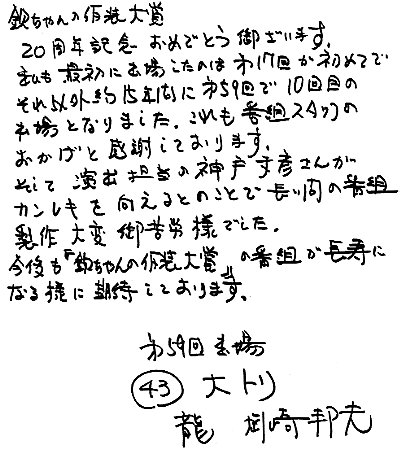 欽ちゃんの仮装大賞
20周年記念 おめでとう御ざいます。
私も最初に出場したのは第17回が初めてで
それ以外約15年間に第59回で10回目の
出場となりました。これも番組スタッフの
おかげと感謝しております。
そして 演出担当の神戸文彦さんが
カンレキを向えるとのことで長い間の番組
製作大変御苦労様でした。
今後も『欽ちゃんの仮装大賞』の番組が長寿に
なる様に期待しております。
第59回出場
43 大トリ
龍 剣崎邦夫